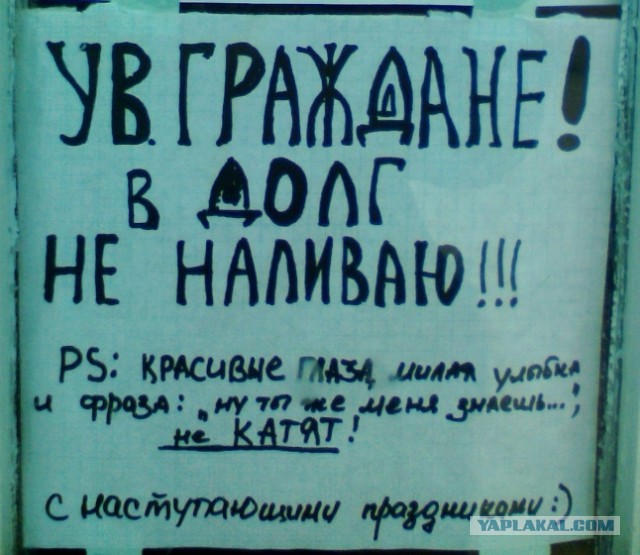 УВ. ГРАЖДАНЕ!
В ДОЛГ
НЕ НАЛИВАЮ!!!
PS: КРАСИВЫЕ ГЛАЗА, МИЛАЯ УЛЫБКА
И ФРАЗА: „НУ ТЫ ЖЕ МЕНЯ ЗНАЕШЬ...",
НЕ КАТЯТ!
С НАСТУПАЮЩИМИ ПРАЗДНИКАМИ :)
YAPLAKAL.COM